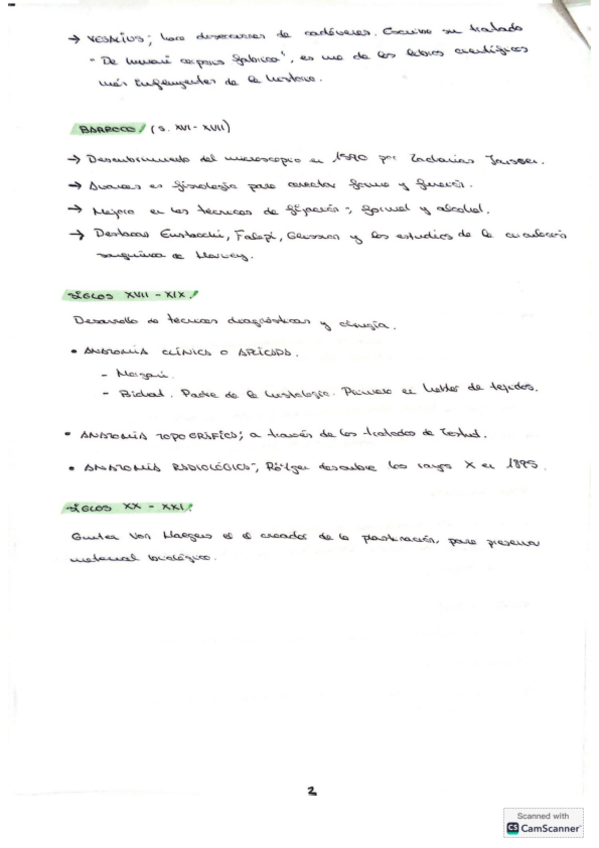 → VESALIUS; hace disecciones de cadáveres. Escribe su tratado
- "De humani corporis fabrica", es uno de los libros científicos
más influyentes de la historia.
BARROCO/ (S. XVI - XVII)
→ Descubrimiento del microscopio en 1590 por Zacharias Janssen.
→ Avances en fisiología para conectar forma y función.
→ Mejora en las técnicas de fijación; formol y alcohol.
→ Destacan Eustacchi, Falopi, Glisson y los estudios de la circulación
sanguínea de Harvey.
SIGLOS XVII - XIX/
Desarrollo de técnicas diagnósticas y cirugía.
• ANATOMIA CLÍNICA O APLICADA.
- Morgani.
- Bichat. Padre de la histología. Primero en hablar de tejidos.
• ANATOMIA TOPOGRÁFICA; a través de los tratados de Testut.
• ANATOMIA RADIOLÓGICA; Röntgen descubre los rayos X en 1895.
SIGLOS XX - XXI/
Gunter Von Hagens es el creador de la plastinación, para preservar
material biológico.
2
Scanned with
CS CamScanner